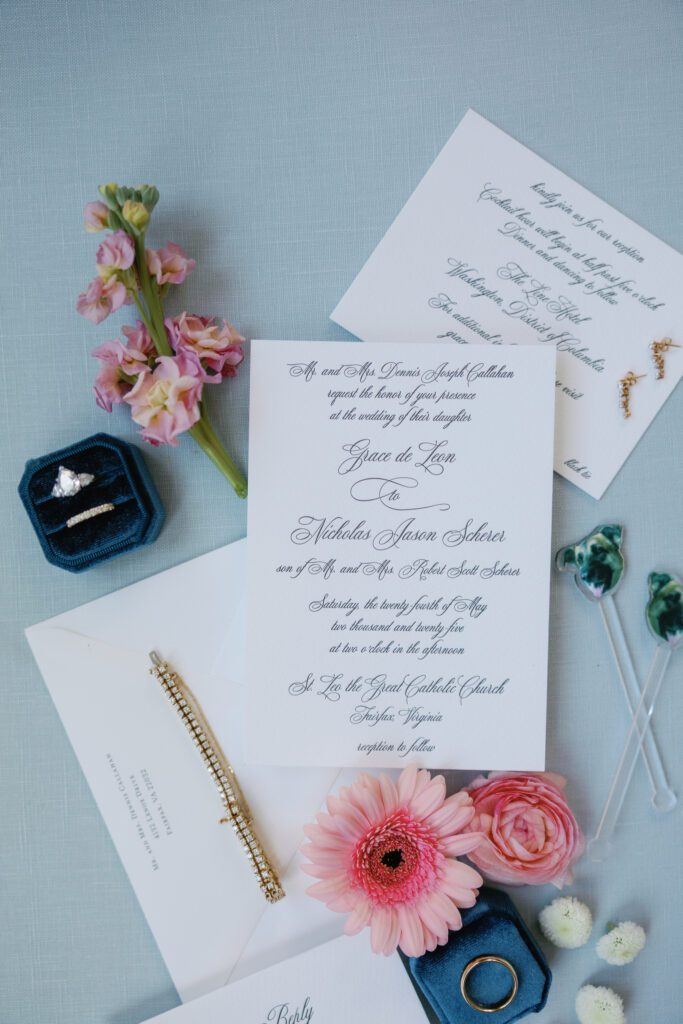 Mr. and Mrs. Dennis Joseph Callahan
request the honor of your presence
at the wedding of their daughter
Grace de Leon
to
Nicholas Jason Scherer
son of Mr. and Mrs. Robert Scott Scherer
Saturday, the twenty fourth of May
two thousand and twenty-five
at two o'clock in the afternoon
St. Leo the Great Catholic Church
Fairfax, Virginia
reception to follow
kindly join us for our reception
Cocktail hour will begin at half past five o'clock
Dinner and dancing to follow
The Line Hotel
Washington, District of Columbia
For additional
visit
grace
black tie
Mr. and Mrs. Dennis Callahan
4152 Lenox Drive
Fairfax, VA 22032
Reply